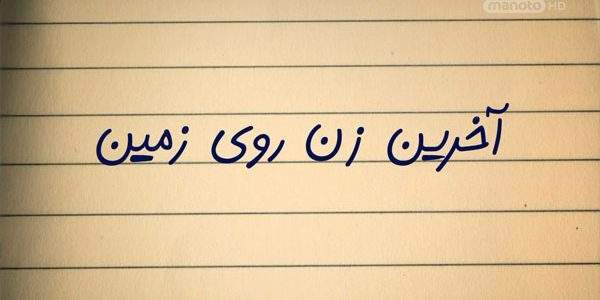 manoto HD
آخرین زن روی زمین